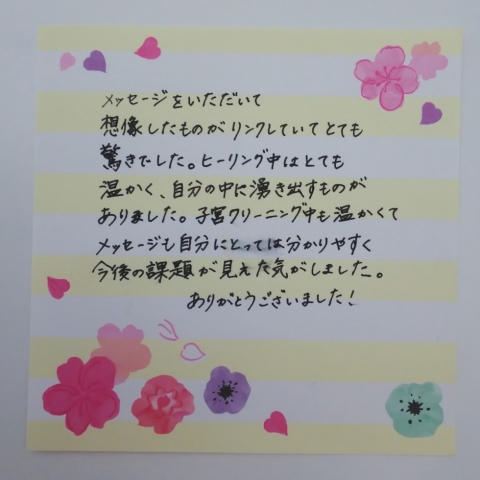 メッセージをいただいて
想像したものがリンクしていてとても
驚きでした。ヒーリング中はとても
温かく、自分の中に湧き出すものが
ありました。子宮クリーニング中も温かくて
メッセージも自分にとっては分かりやすく
今後の課題が見えた気がしました。
ありがとうございました！